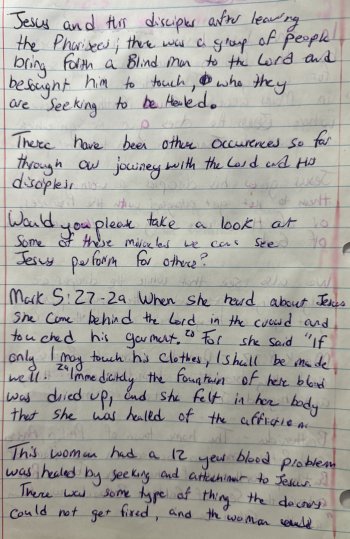 Jesus and His disciples after leaving
the Pharisees; there was a group of people
bring forth a Blind man to the Lord and
besought him to touch, who they
are seeking to be Healed.
There have been other occurences so far
through our journey with the Lord and His
disciples.
Would you please take a look at
some of these miracles we can see
Jesus perform for others?
Mark 5:27-29 When she heard about Jesus
she come behind the Lord in the crowd and
touched his garment. 28 For she said "If
only I may touch his clothes, I shall be made
well. 29 Immedictly the fountain of here blood
was dried up, and she felt in her body
that she was healed of the affliction.
This woman had a 12 year blood problem
was healed by seeking and to Jesus.
There was some type of thing the doctors
could not get fixed, and the woman would